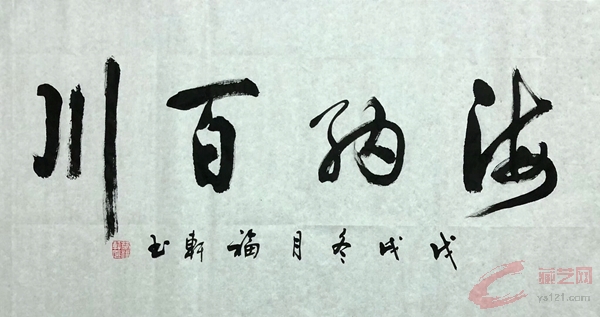 海纳百川
戊戌冬月福軒书
ya121.com